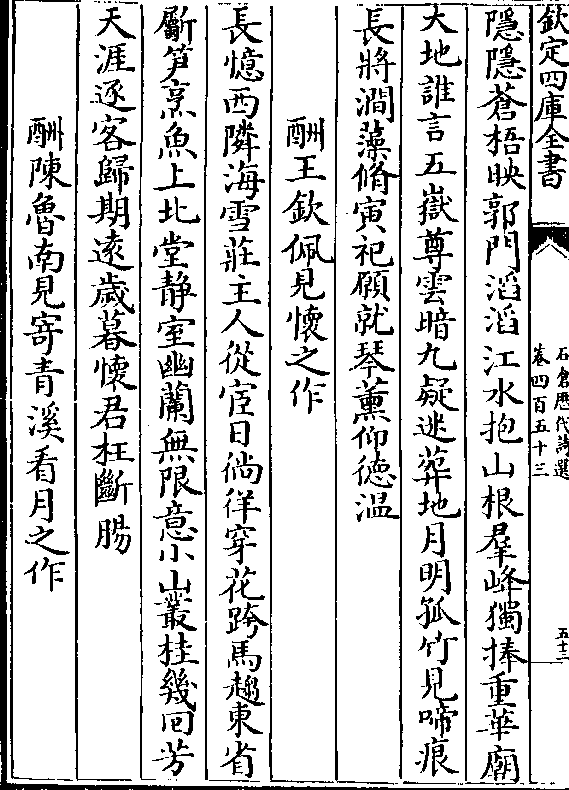 欽定四庫全書
石倉歴代詩選
卷四百五十三
五十三
隱隱蒼梧映郭門滔滔江水抱山根羣峰獨捧重華廟
大地誰言五嶽尊雲暗九疑迷葬地月明孤竹見啼痕
長將澗藻脩寅祀願就琴薰仰德温
酬王欽佩見懷之作
長憶西隣海雪莊主人從宦日徜徉穿花跨馬趨東省
斸笋烹魚上北堂静室幽蘭無限意小山叢桂幾回芳
天涯逐客歸期遠歳暮懷君枉斷腸
酬陳魯南見寄青溪看月之作